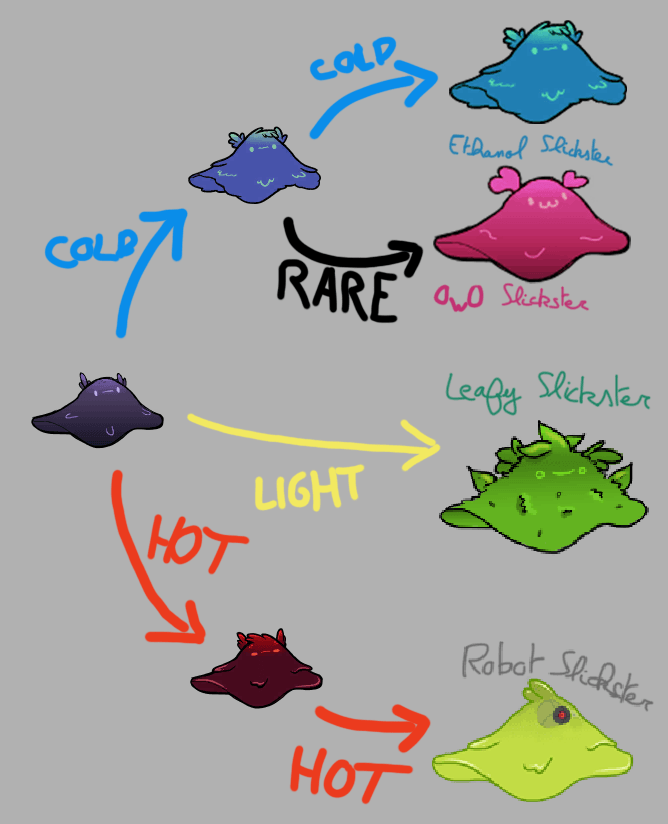 COLD
Ethanol Slickster
COLD
RARE
OwO Slickster
Leafy Slickster
LIGHT
HOT
Robot Slickster
HOT